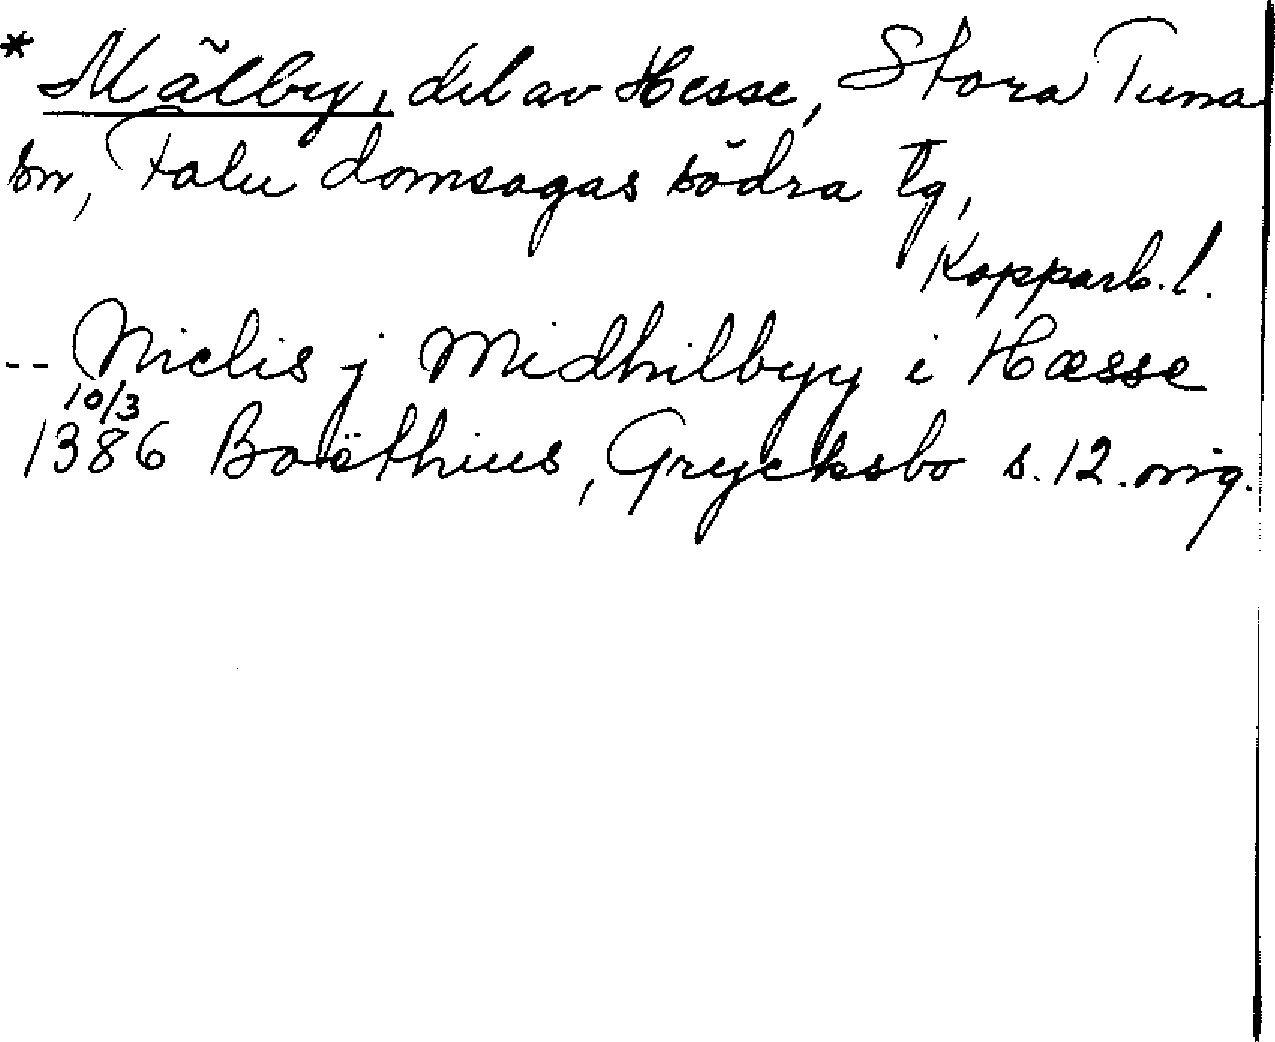 * Mälby, del av Hesse, Stora Tuna
sn, Falu domsagas södra tg,
Kopparb. l.
-- Niclis j Midhilbyy i Hæsse
10/3
1386 Boëthius, Grycksbo s. 12. orig.